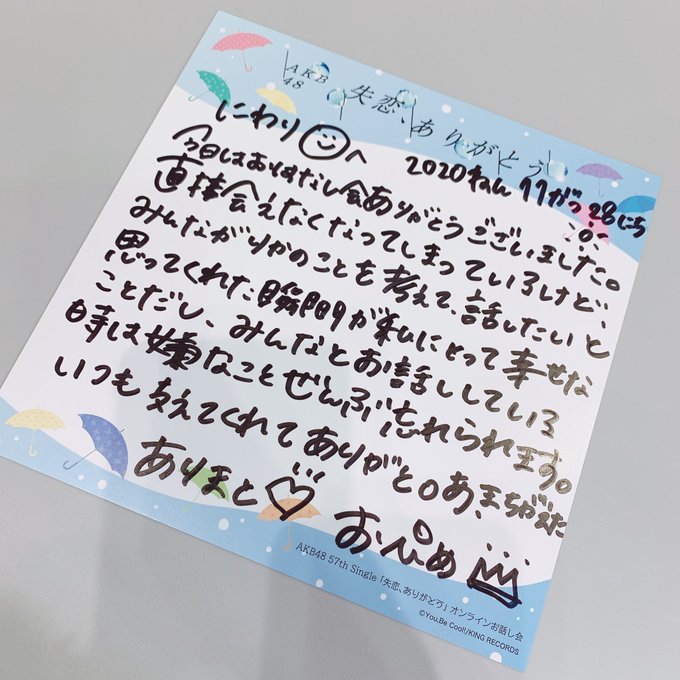 AKB
48
失恋、ありがとう
にわり へ 2020ねん 11がつ 28にち
今日はおはなし会ありがとうございました。
直接会えなくなってしまっているけど、
みんながりかのことを考えて、話したいと
思ってくれた瞬間が私にとって幸せな
ことだし、みんなとお話ししている
時は嫌なことぜんぶ忘れられます。
いつも支えてくれてありがと。あ、まちがえた
ありまと♡
おぴめ
AKB48 57th Single「失恋、ありがとう」オンラインお話し会
©You, Be Cool!/KING RECORDS